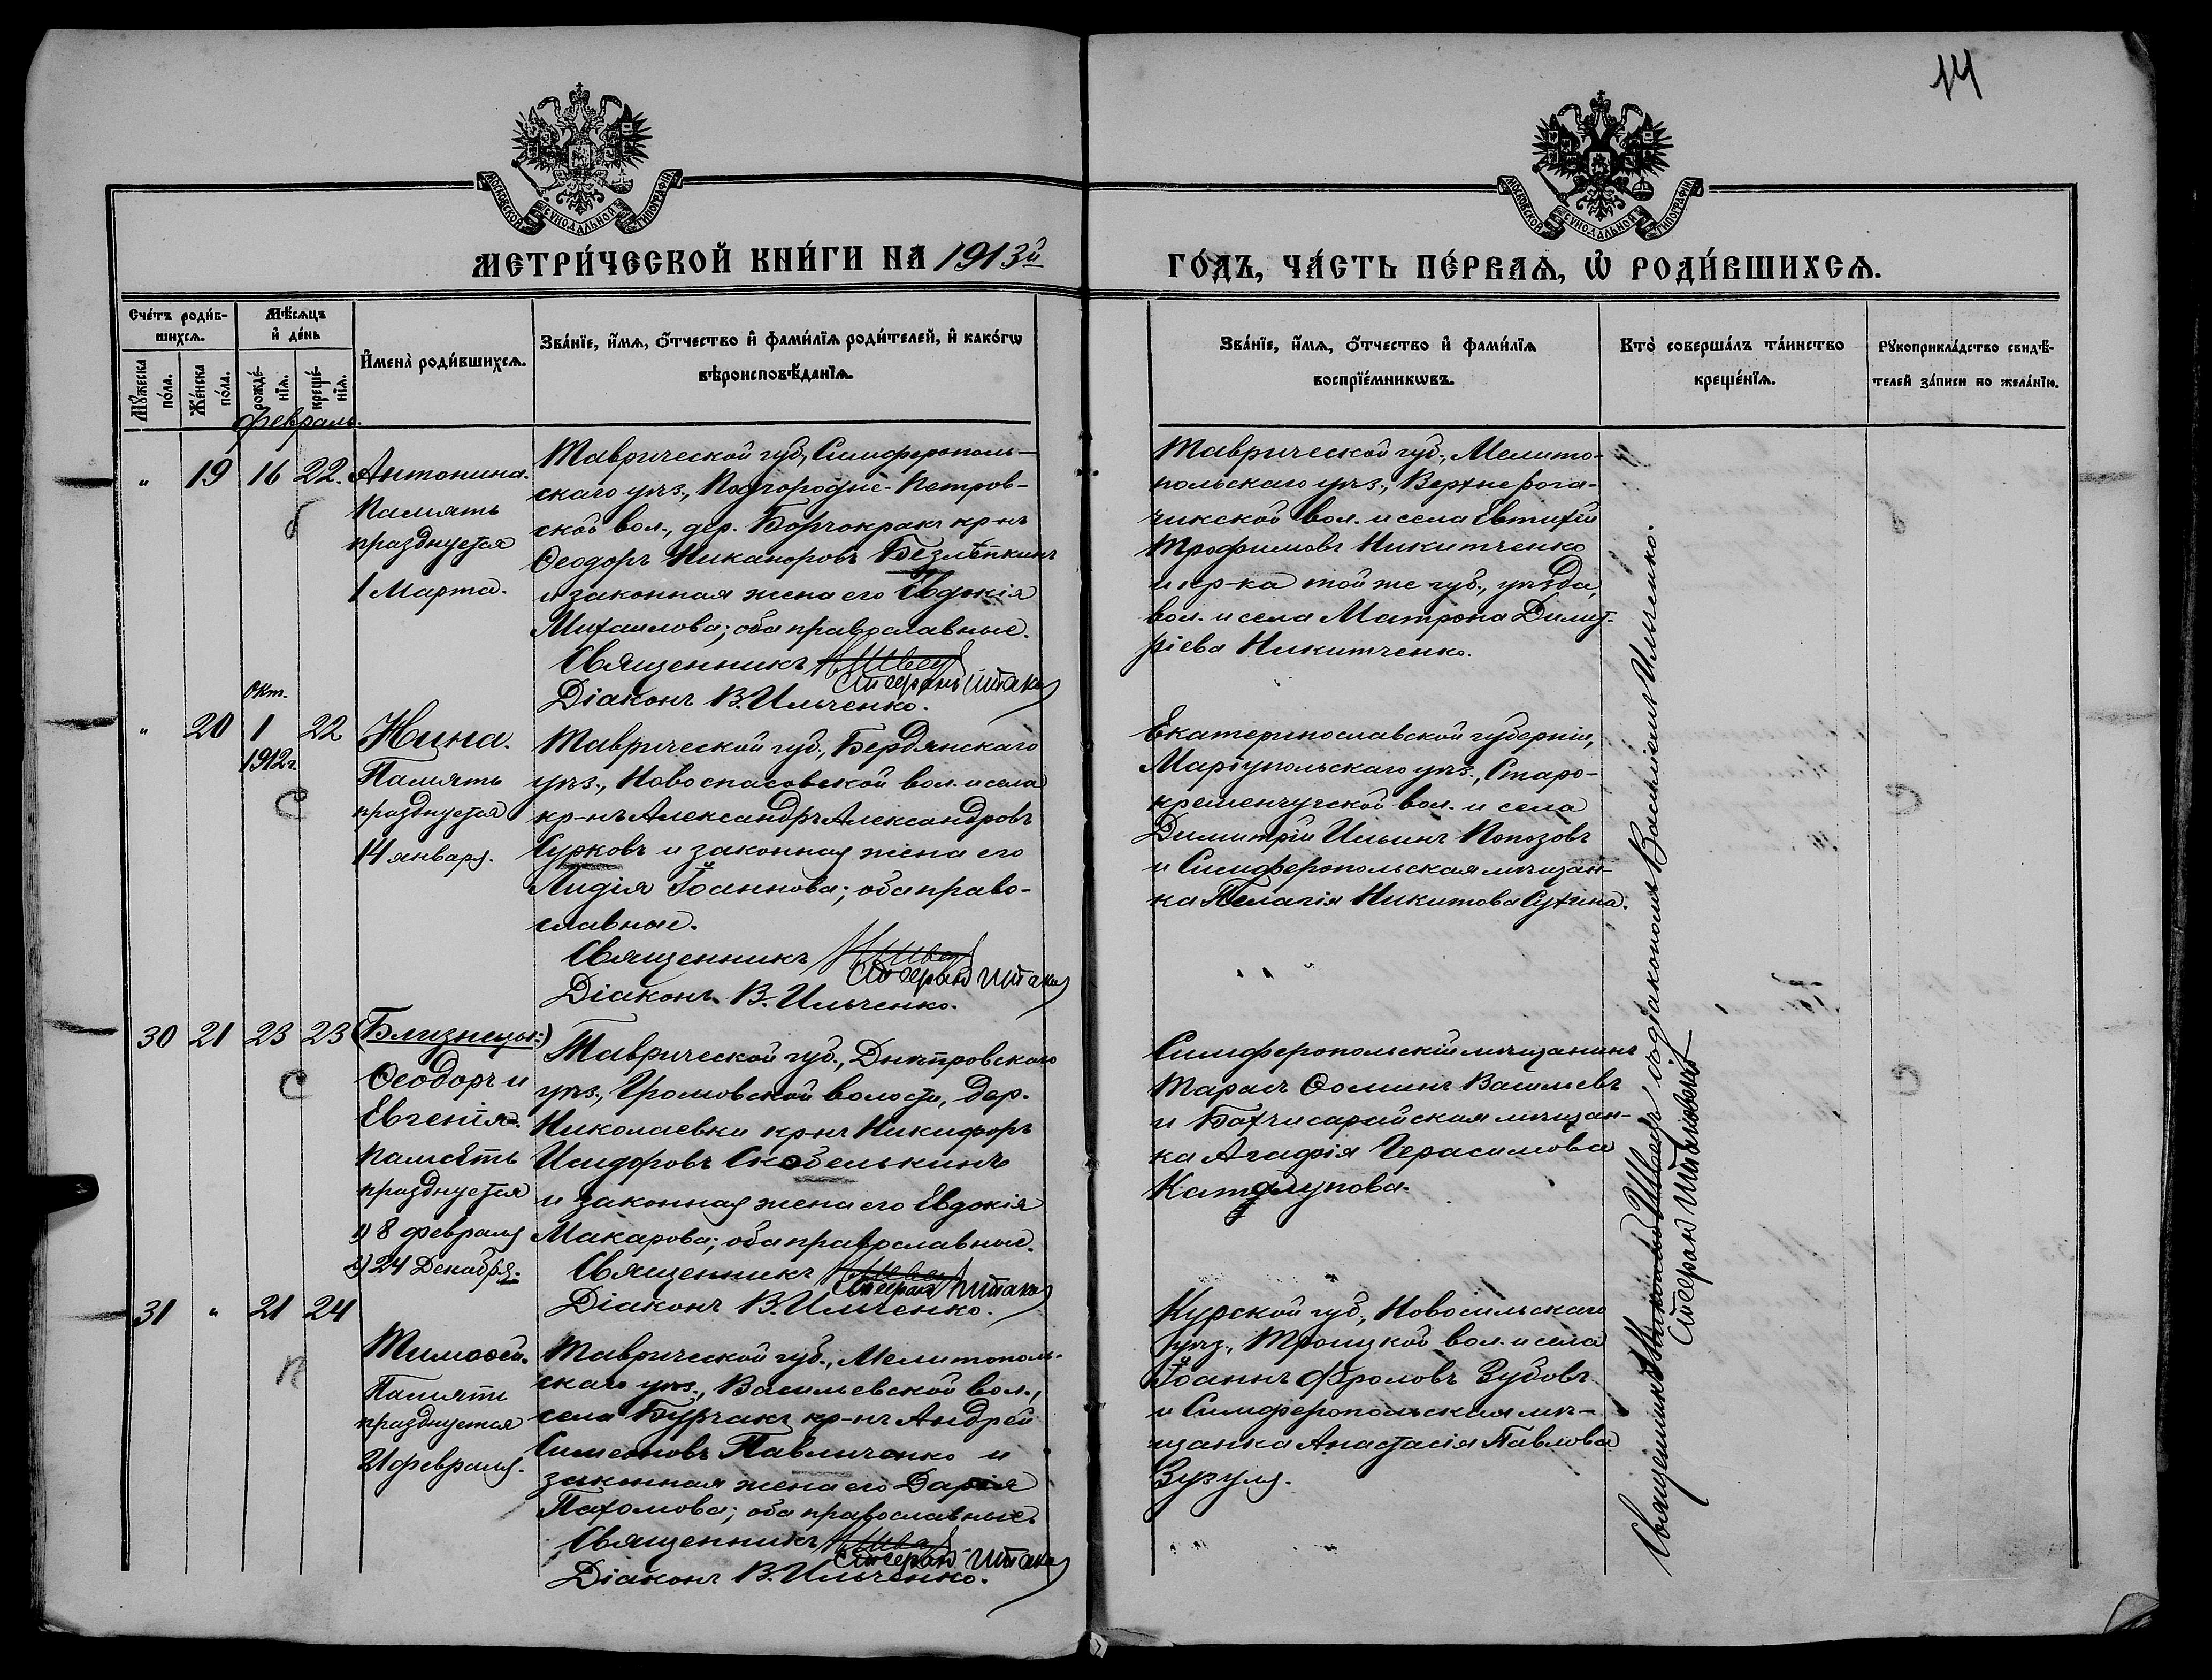 14
МОСКОВСКОЙ СѴНОДАЛЬНОЙ ТИПОГРАФІИ
МОСКОВСКОЙ СѴНОДАЛЬНОЙ ТИПОГРАФІИ
МЕТРИ́ЧЕСКОЙ КНИ́ГИ НА 1913й
ГО́ДЪ, ЧА́СТЬ ПЕ́РВАѦ, Ѡ҆ РОДИ́ВШИХСѦ.
Сче́тъ роди́в-
шихсѧ.
Мѣ́сѧцъ
и҆ де́нь
Мꙋ́жеска
по́ла.
Же́нска
по́ла.
рожде́-
нїѧ.
креще́-
нїѧ.
И҆мена̀ роди́вшихсѧ.
Зва́нїе, и҆́мѧ, ѻ҆́тчество и҆ фами́лїѧ роди́телей, и҆ како́гѡ
вѣроисповѣ́данїѧ.
Зва́нїе, и҆́мѧ, ѻ҆́тчество и҆ фами́лїѧ
воспрїе́мникѡвъ.
Кто̀ соверша́лъ та́инство
креще́нїѧ.
Рꙋкоприкла́дство свидѣ́-
телей за́писи по жела́нїю.
Февраль.
" 19 16 22.
Антонина.
Память
празднуется
1 Марта.
Таврической губ., Симферополь-
скаго уѣз., Подгородне-Петров-
ской вол., дер. Борчокракъ кр-нъ
Ѳеодоръ Никаноровъ Безлѣпкинъ
и законная жена его Евдокія
Михаилова; оба православные.
Священникъ Н. Швецъ
Стефанъ Штак
Діаконъ В. Ильченко.
Таврической губ., Мелито-
польскаго уѣз., Верхне рога-
чикской вол. и села Евтихій
Трофимовъ Никитченко
и кр-ка той же губ., уѣзда,
вол. и села Матрона Димит-
ріева Никитченко.
Окт.
" 20 1 22
1912г.
Нина.
Память
празднуется
14 января.
Таврической губ., Бердянскаго
уѣз., Новоспасовской вол. и села
кр-нъ Александръ Александровъ
Сурковъ и законная жена его
Лидія Іоаннова; оба право-
славные.
Священникъ Н. Швецъ
Стефанъ Штак
Діаконъ В. Ильченко.
Екатеринославской губерніи,
Маріупольскаго уѣз., Старо-
кременчугской вол. и села
Димитрій Ильинъ Попозовъ
и Симферопольская мѣщан-
ка Пелагія Никитова Сухина.
30 21 23 23
(Близнецы:)
Ѳеодоръ и
Евгенія.
Память
празднуется
1) 8 февраля
2) 24 Декабря.
Таврической губ., Днѣпровскаго
уѣз., Громовской волости, дер.
Николаевки кр-нъ Никифоръ
Исидоровъ Скобелькинъ
и законная жена его Евдокія
Макарова; оба православные.
Священникъ Н. Швецъ
Стефанъ Штак
Діаконъ В. Ильченко.
Симферопольскій мѣщанинъ
Тарасъ Ѳоминъ Васильевъ
и Бахчисарайская мѣщан-
ка Агафія Герасимова
Каталупова.
31 " 21 24
Тимоѳей.
Память
празднуется
21 февраля.
Таврической губ., Мелитополь-
скаго уѣз., Васильевской вол.,
села Бурчакъ кр-нъ Андрей
Симеоновъ Павличенко и
законная жена его Дарія
Пахомова; оба православные.
Священникъ Н. Швецъ
Стефанъ Штак
Діаконъ В. Ильченко.
Курской губ., Новосильскаго
уѣз., Троицкой вол. и села
Іоаннъ Фроловъ Зубовъ
и Симферопольская мѣ-
щанка Анастасія Павлова
Зузуля.
Священникъ Николай Швецъ, съ діакономъ Василіемъ Ильченко.
Стефан